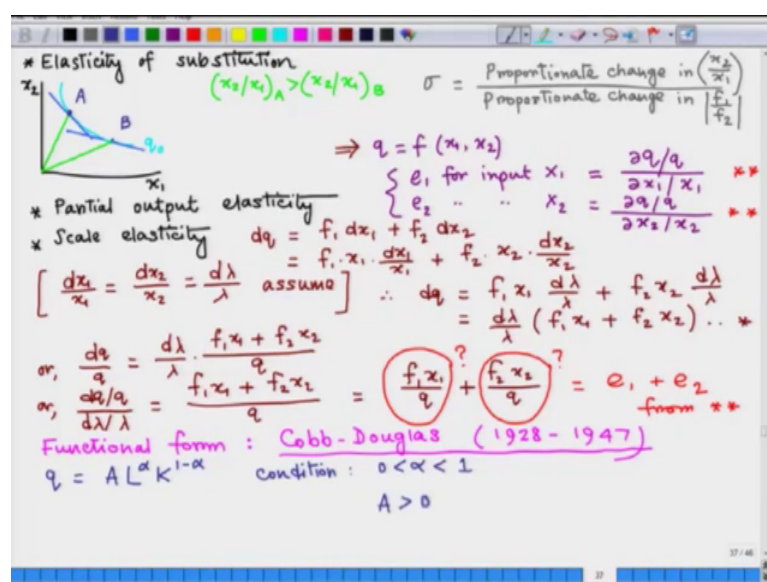 * Elasticity of substitution
x₂
A
B
q₀
x₁
(x₂/x₁)A > (x₂/x₁)B
σ = Proportionate change in (x₂/x₁) / Proportionate change in |f₁/f₂|
⇒ q = f (x₁, x₂)
{ e₁ for input x₁ = ∂q/q / ∂x₁/x₁ **
e₂ " " x₂ = ∂q/q / ∂x₂/x₂ **
* Partial output elasticity
* Scale elasticity dq = f₁ dx₁ + f₂ dx₂
= f₁·x₁·dx₁/x₁ + f₂·x₂·dx₂/x₂
[ dx₁/x₁ = dx₂/x₂ = dλ/λ assume ] ∴ dq = f₁ x₁ dλ/λ + f₂ x₂ dλ/λ
= dλ/λ (f₁x₁ + f₂x₂) .. *
or, dq/q = dλ/λ · f₁x₁ + f₂x₂ / q
or, dq/q / dλ/λ = f₁x₁ + f₂x₂ / q = f₁x₁/q ? + f₂x₂/q ? = e₁ + e₂
from **
Functional form : Cobb-Douglas (1928 - 1947)
q = A L^α K^1-α condition : 0 < α < 1
A > 0
37 / 46
37